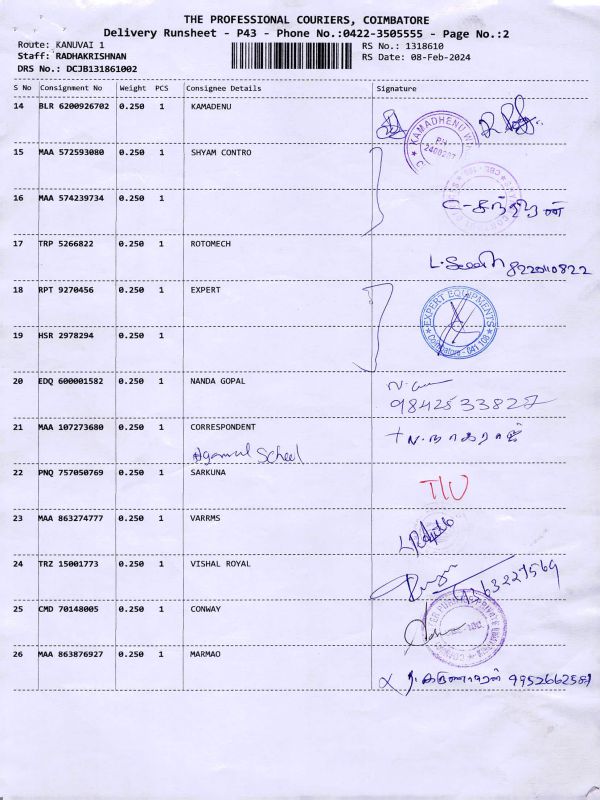 THE PROFESSIONAL COURIERS, COIMBATORE
Delivery Runsheet - P43 - Phone No.:0422-3505555 - Page No.:2
Route: KANUVAI 1 RS No.: 1318610
Staff: RADHAKRISHNAN RS Date: 08-Feb-2024
DRS No.: DCJB131861002
S No Consignment No Weight PCS Consignee Details Signature
14 BLR 6200926702 0.250 1 KAMADENU
KAMADHENU
PH:
15 MAA 572593080 0.250 1 SHYAM CONTRO
16 MAA 574239734 0.250 1
17 TRP 5266822 0.250 1 ROTOMECH
18 RPT 9270456 0.250 1 EXPERT
EXPERT EQUIPMENTS
Coimbatore - 641 108
19 HSR 2978294 0.250 1
20 EDQ 600001582 0.250 1 NANDA GOPAL
9842533827
21 MAA 107273680 0.250 1 CORRESPONDENT
+ N. நாகராஜ்
22 PNQ 757050769 0.250 1 SARKUNA
23 MAA 863274777 0.250 1 VARRMS
24 TRZ 15001773 0.250 1 VISHAL ROYAL
25 CMD 70148005 0.250 1 CONWAY
26 MAA 863876927 0.250 1 MARMAO